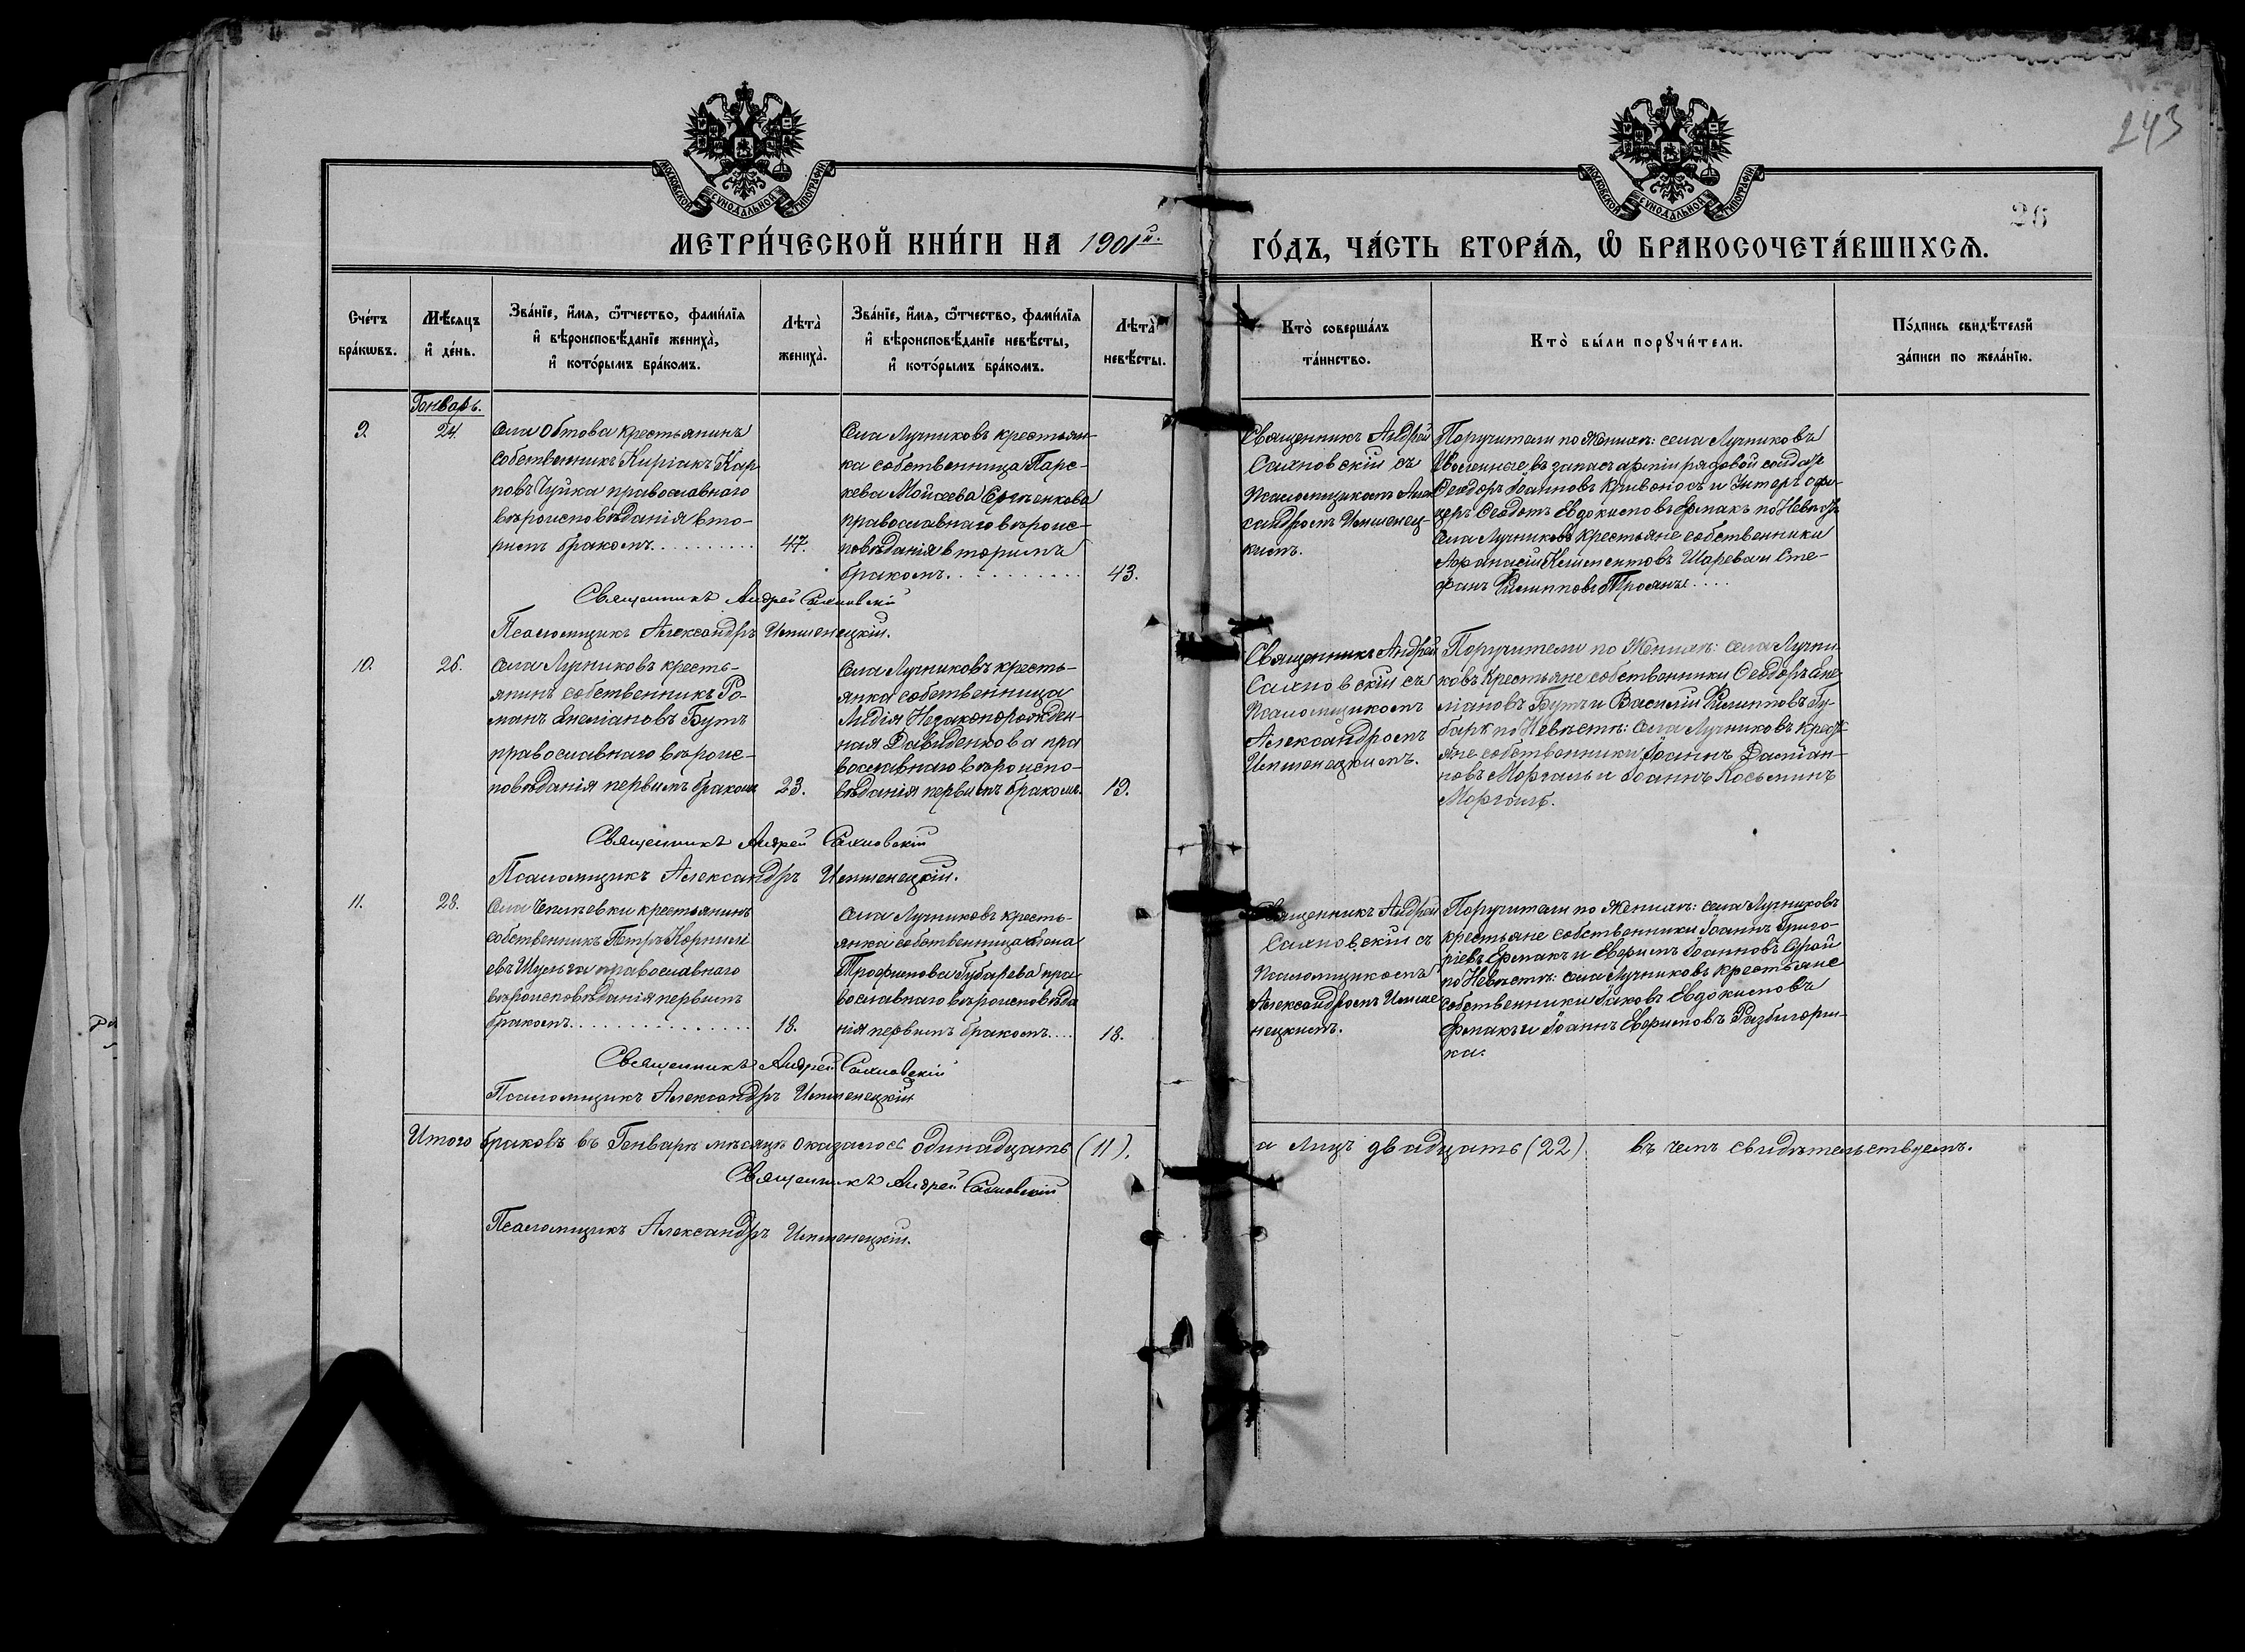 243
26
МОСКОВСКОЙ СУНОДАЛЬНОЙ ТИПОГРАФІИ
МОСКОВСКОЙ СУНОДАЛЬНОЙ ТИПОГРАФІИ
МЕТРИ́ЧЕСКОЙ КНИ́ГИ НА 1901й.
ГО́ДЪ, ЧА́СТЬ ВТОРА́Я, Ѡ БРАКОСОЧЕТА́ВШИХСѦ.
Сче́тъ бра́кωвъ.
Мѣ́сяцъ и҆ де́нь.
Зва́нїе, и҆́мя, ѻ҆́тчество, фами́лїя и҆ вѣроисповѣ́данїе жениха̀, и҆ кото́рымъ бра́комъ.
Лѣта̀ жениха̀.
Зва́нїе, и҆́мя, ѻ҆́тчество, фами́лїя и҆ вѣроисповѣ́данїе невѣ́сты, и҆ кото́рымъ бра́комъ.
Лѣта̀ невѣ́сты.
Кто̀ соверша́лъ та́инство.
Кто̀ бы́ли порꙋчи́тели.
По́дпись свидѣ́телей за́писи по жела́нїю.
Генварь.
9.
24.
Села Обтова крестьянинъ
собственникъ Киріакъ Кар
повъ Чуйка православнаго
вѣроисповѣданія вто-
римъ бракомъ
47.
Села Лучниковъ крестьян-
ка собственница Парс-
кева Мойсеева
православнаго вѣроис-
повѣданія вторимъ
бракомъ
43.
Священникъ Андрей
Сахновскій съ
Псаломщикомъ Алек
сандромъ
Поручители по Женихѣ: села Лучниковъ
въ запасъ арміи рядовой солдатъ
Феодоръ Іоанновъ Кривоносъ и Унтеръ офи-
церъ Феодотъ Евдокимовъ Ермакъ по Невѣстѣ
села Лучниковъ Крестьяне собственники
Афанасій Климентовъ Шарева и Сте-
фанъ Филипповъ Троянъ
Священникъ Андрей Сахновскій
Псаломщикъ Александръ
10.
26.
Села Лучниковъ кресть-
янинъ собственникъ Ро-
манъ Емеліановъ Бутъ
православнаго вѣроис-
повѣданія первимъ бракомъ
23.
Села Лучниковъ кресть-
янка собственница
Лидія Незаконорожден-
ная Давиденкова пра
вославнаго вѣроиспо-
вѣданія первимъ бракомъ.
19.
Священникъ Андрей
Сахновскій съ
Псаломщикомъ
Александромъ
Поручители по Женихѣ: села Лучни
ковъ Крестьяне собственники Феодоръ Еме
ліановъ Бутъ и Василій Филипповъ Гу-
барь по Невѣстѣ: села Лучниковъ Кресть
яне собственники Іоаннъ Даміан-
новъ Моргаль и Іоаннъ Косьминъ
Моргаль.
Священникъ Андрей Сахновскій
Псаломщикъ Александръ
11.
28.
Села Чепліевки крестьянинъ
собственникъ Петръ Корнилі
евъ Шульга православнаго
вѣроисповѣданія первимъ
бракомъ
18.
Села Лучниковъ кресть-
янка собственница Елена
Трофимова Губарева пра
вославнаго вѣроисповѣда
нія первимъ бракомъ
18.
Священникъ Андрей
Сахновскій съ
Псаломщикомъ
Александромъ
Поручители по Женихѣ: села Лучниковъ
крестьяне собственники Іоаннъ Григо-
ріевъ Ермакъ и Евфимъ Іоанновъ
по Невѣстѣ: села Лучниковъ крестьяне
собственники Іаковъ Евдокимовъ
Ермакъ и Іоаннъ Евфимовъ
Священникъ Андрей Сахновскій
Псаломщикъ Александръ
Итого браковъ въ Генварѣ мѣсяцѣ оказалось одинадцать (11). а лицъ двадцать (22) въ чемъ свидѣтельствуемъ.
Священникъ Андрей Сахновскій
Псаломщикъ Александръ